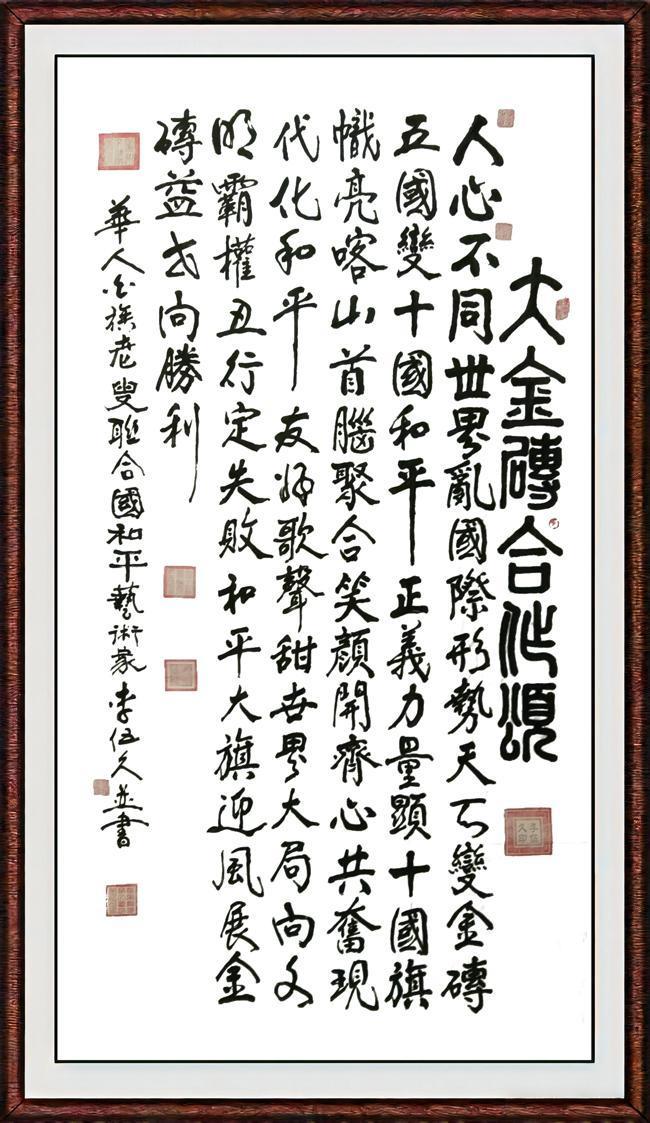 大金磚合作頌
人心不同世界亂國際形勢天々變金磚
五國變十國和平正義力量顯十國旗
幟亮喀山首腦聚合笑顏開齊心共奮現
代化和平友好歌聲甜世界大局向文
明霸權丑行定失敗和平大旗迎風展金
磚益向勝利
華人白族老叟聯合國和平藝術家李伍久並書
李伍久印